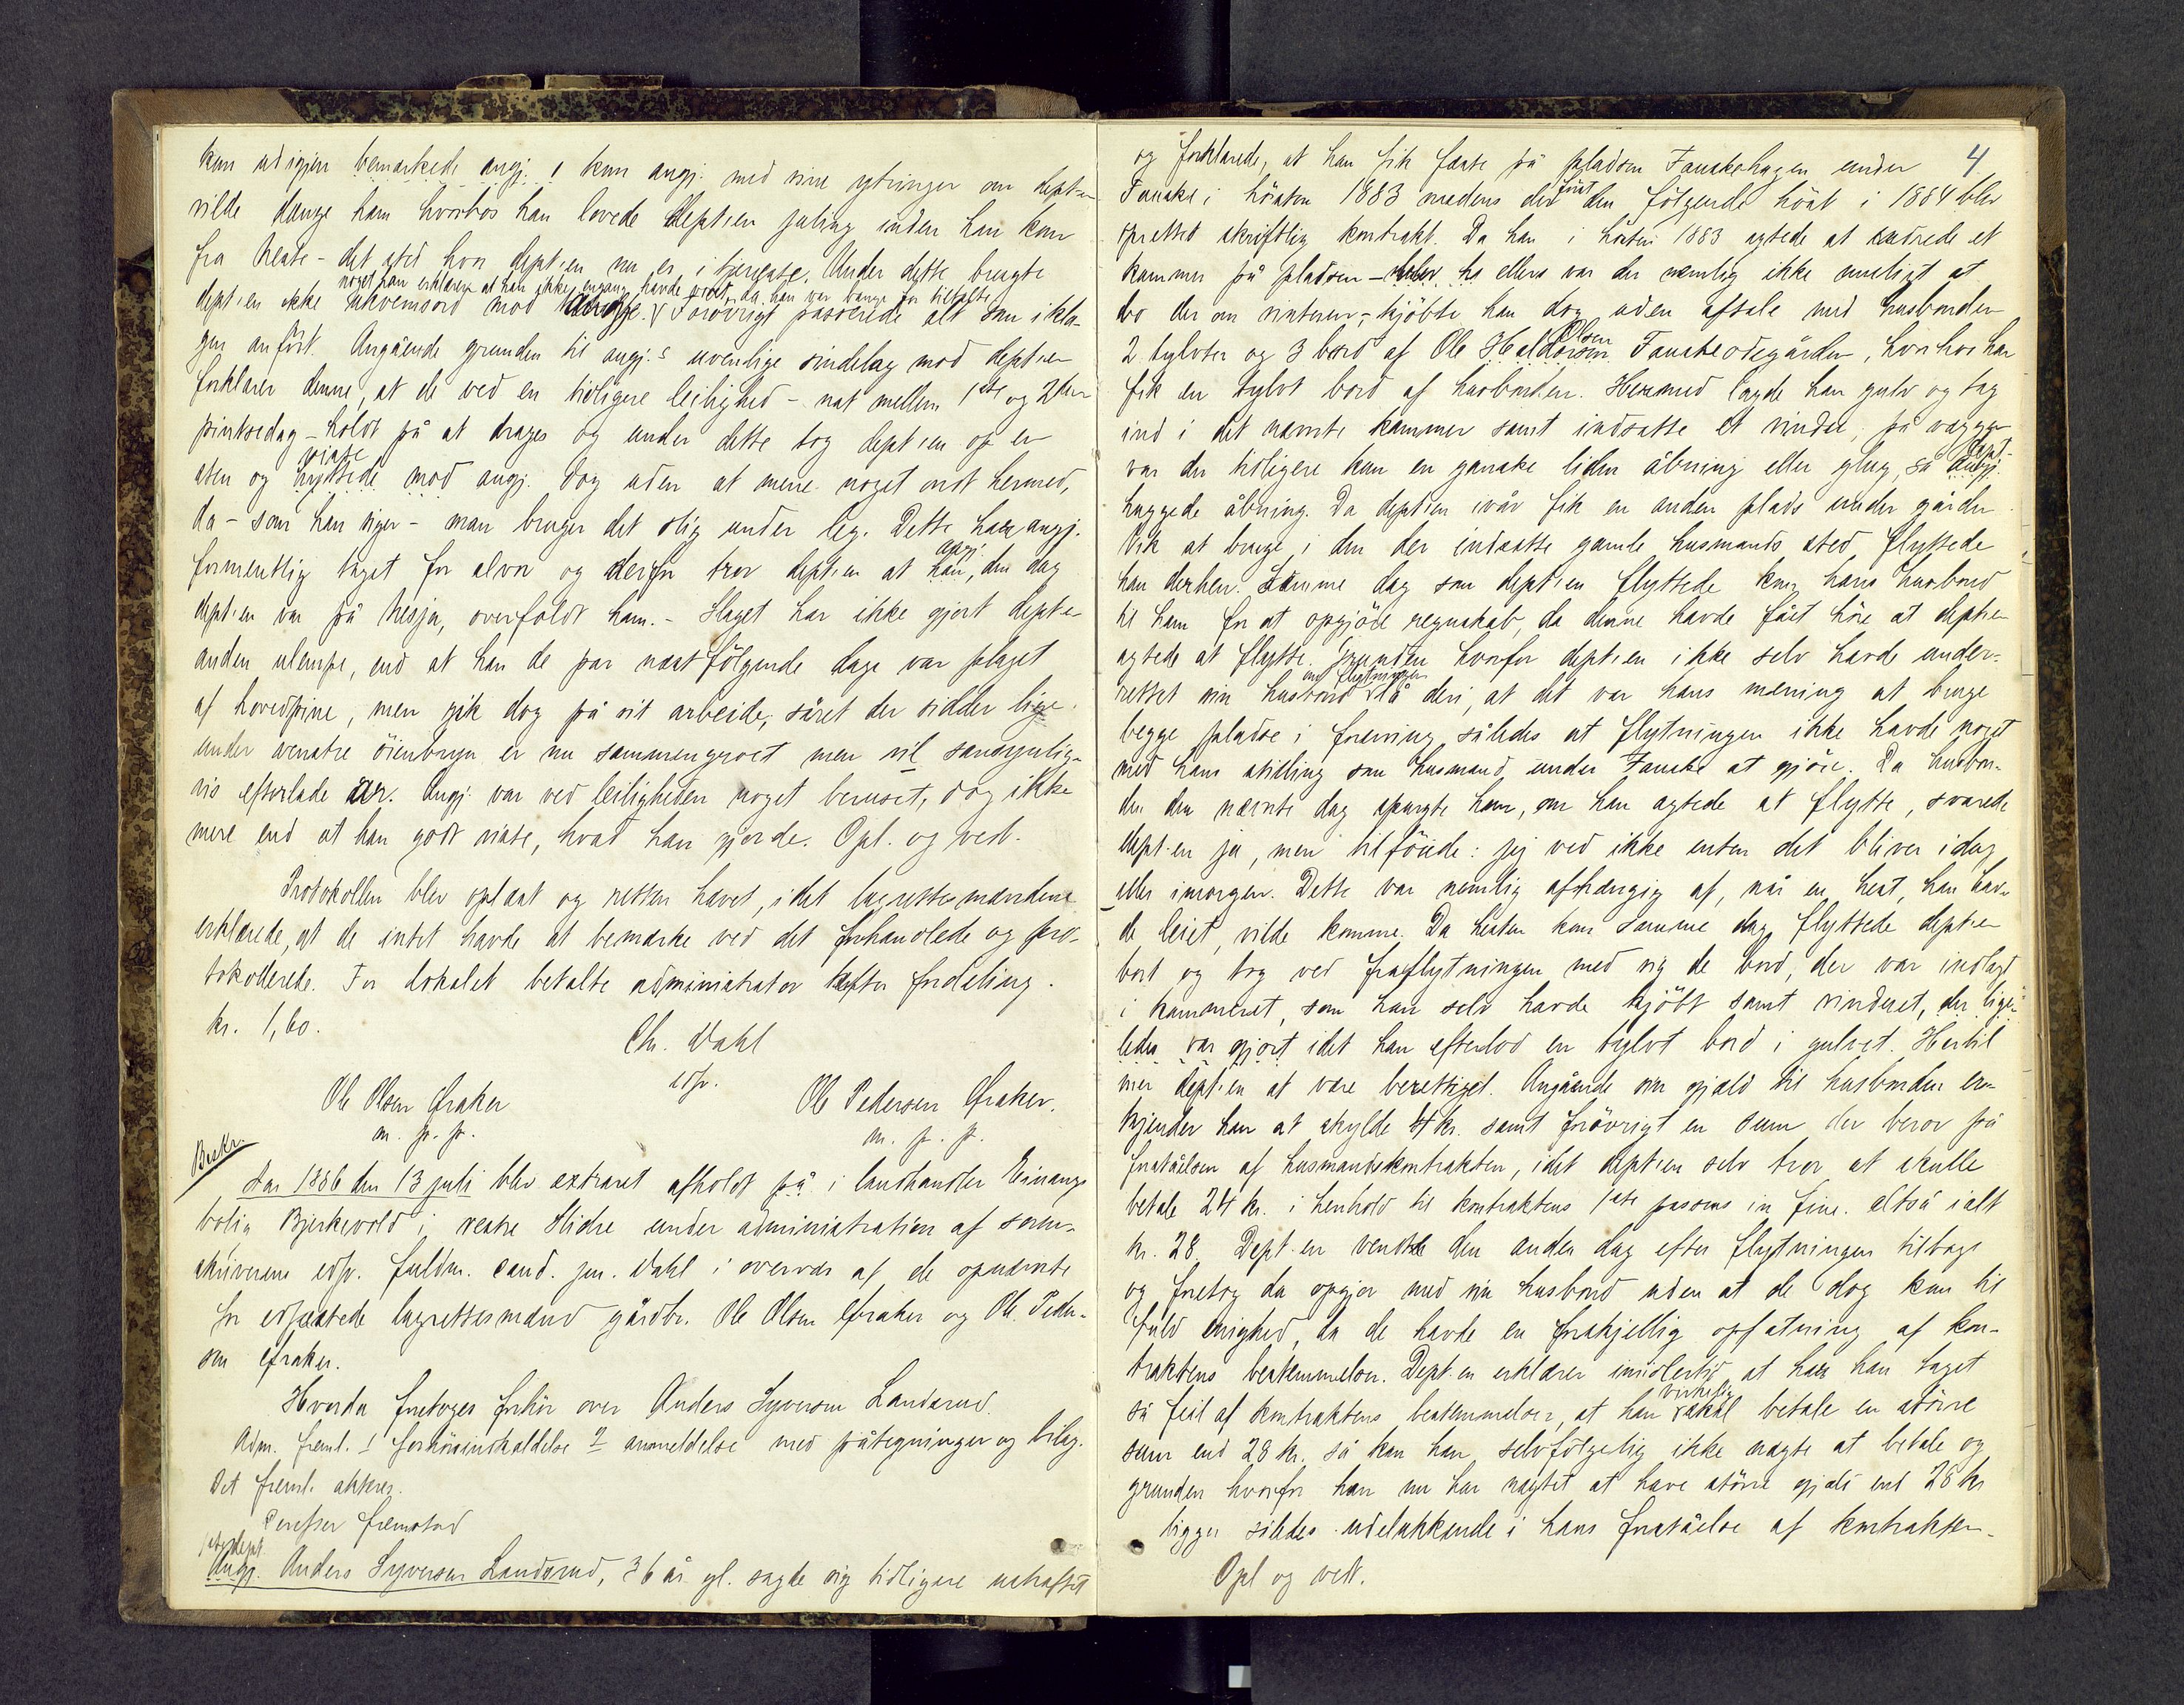 kun udigjen bemærkede angj. & kun angj. med sine ytringer om dept.en
vilde dænge ham hvorhos han lovede deptien juling inden han kom
fra Neste - det sted hvor dept.en nu er i tjeneste. Under dette brugte
noget han erklærer at han ikke engang havde vovet, da han var bange for tiltalte
dept.en ikke ukvemsord mod angj. Forøvrigt passerede alt som i kla-
gen anført. Angående grunden til angj.s uvenlige sindelag mod dept.en
forklarer denne, at de ved en tidligere leilighed - nat mellem 1ste og 2den
pintsedag - holdt på at drages og under dette tog dept.en op en
viste
sten og hyttede mod angj. dog uden at mene noget ondt hermed,
da - som han siger - man bruger det slig under leg. Dette har angj.
angj.
formentlig taget for alvor og derfor tror dept.en at han, den dag
dept.en var på Nesja, overfaldt ham. - Slaget har ikke gjort dept.en
anden ulempe, end at han de par næstfølgende dage var plaget
af hovedpine, men gik dog på sit arbeide, såret der sidder lige
under venstre øienbryn er nu sammengroet men vil sandsynlig-
vis efterlade ar. Angj. var ved leiligheden noget beruset, dog ikke
mere end at han godt viste, hvad han gjorde. Opl. og vedt.
Protokollen blev oplæst og retten hævet, idet lagrettesmændene
erklærede, at de intet havde at bemærke ved det forhandlede og pro-
tokollerede. For lokalet betalte administrator efter fordeling
kr. 1,60.
Chr. Dahl
edsv.
Ole Olsen Øfraker
Ole Pedersen Øfraker.
m. p. p.
m. p. p.
Beskr.
År 1886 den 13 juli blev extraret afholdt på i landhandler Einangs
bolig Bjerkevold i vestre Slidre under administration af soren-
skriverens edsv. fuldm. cand. jur. Dahl i overvær af de opnævnte
før edfæstede lagrettesmænd gårdbr. Ole Olsen Øfraker og Ole Peder-
sen Øfraker.
Hvorda foretoges forhør over Anders Syversen Landsrud.
Adm. freml. 1 forhørsindkaldelse 2 anmeldelse med påtegninger og bilag.
Det freml. aktes.
Derefter fremstod
1ste dept
Angj. Anders Syversen Landsrud, 36 år gl. sagde sig tidligere ustraffet
4
og forklarede, at han fik fæste på pladsen Fauskehagen under
Fauske i høsten 1883 medens der først den følgende høst i 1884 blev
oprettet skriftlig kontrakt. Da han i høsten 1883 agtede at indrede et
kammer på pladsen - ellers var der nemlig ikke muligt at
bo der om vinteren, - kjøbte han dog uden aftale med husbonden
Olsen
2 tylvter og 3 bord af Ole Haldorsen Fauskeødegården, hvorhos han
fik en tylvt bord af husbonden. Hermed lagde han gulv og tag
ind i det nævnte kammer samt indsatte et vindu, på væggen
dept.
var der tidligere kun en ganske liden åbning eller glug, så angj.
huggede åbning. Da dept.en ivår fik en anden plads under gården
Vik at bruge i den der indsatte gamle husmands sted, flyttede
han derhen. Samme dag som dept.en flyttede kom hans husbond
til ham for at opgjøre regnskab, da denne havde fået høre at dept.en
agtede at flytte. Grunden hvorfor dept.en ikke selv havde under-
om flytningen
rettet sin husbond lå deri, at det var hans mening at bruge
begge pladse i forening således at flytningen ikke havde noget
med hans stilling som husmand under Fauske at gjøre. Da husbon-
den den nævnte dag spurgte ham, om han agtede at flytte, svarede
dept.en ja, men tilføiede: jeg ved ikke enten det bliver idag
eller imorgen. Dette var nemlig afhængig af, når en hest, han hav-
de leiet, vilde komme. Da hesten kom samme dag, flyttede dept.en
bort og tog ved fraflytningen med sig de bord, der var indlagt
i kammeret, som han selv havde kjøbt samt vinduet, der lige-
ledes var gjort idet han efterlod en tylvt bord i gulvet. Hertil
mener dept.en at være berettiget. Angående sin gjæld til husbonden er-
kjender han at skylde 4 kr. samt forøvrigt en sum der beror på
forståelsen af husmandskontrakten, idet dept.en selv tror at skulle
betale 24 kr. i henhold til kontraktens 1ste passus in fine. altså ialt
kr. 28. Dept.en vendte den anden dag efter flytningen tilbage
og foretog da opgjør med sin husbond uden at de dog kom til
fuld enighed, da de havde en forskjellig opfatning af kon-
traktens bestemmelser. Dept.en erklærer imidlertid at har han taget
virkelig
så feil af kontraktens bestemmelser, at han skal betale en større
sum end 28 kr. så kan han selvfølgelig ikke nægte at betale og
grunden hvorfor han nu har nægtet at have større gjæld end 28 kr
ligger således udelukkende i hans forståelse af kontrakten.
Opl og vedt.